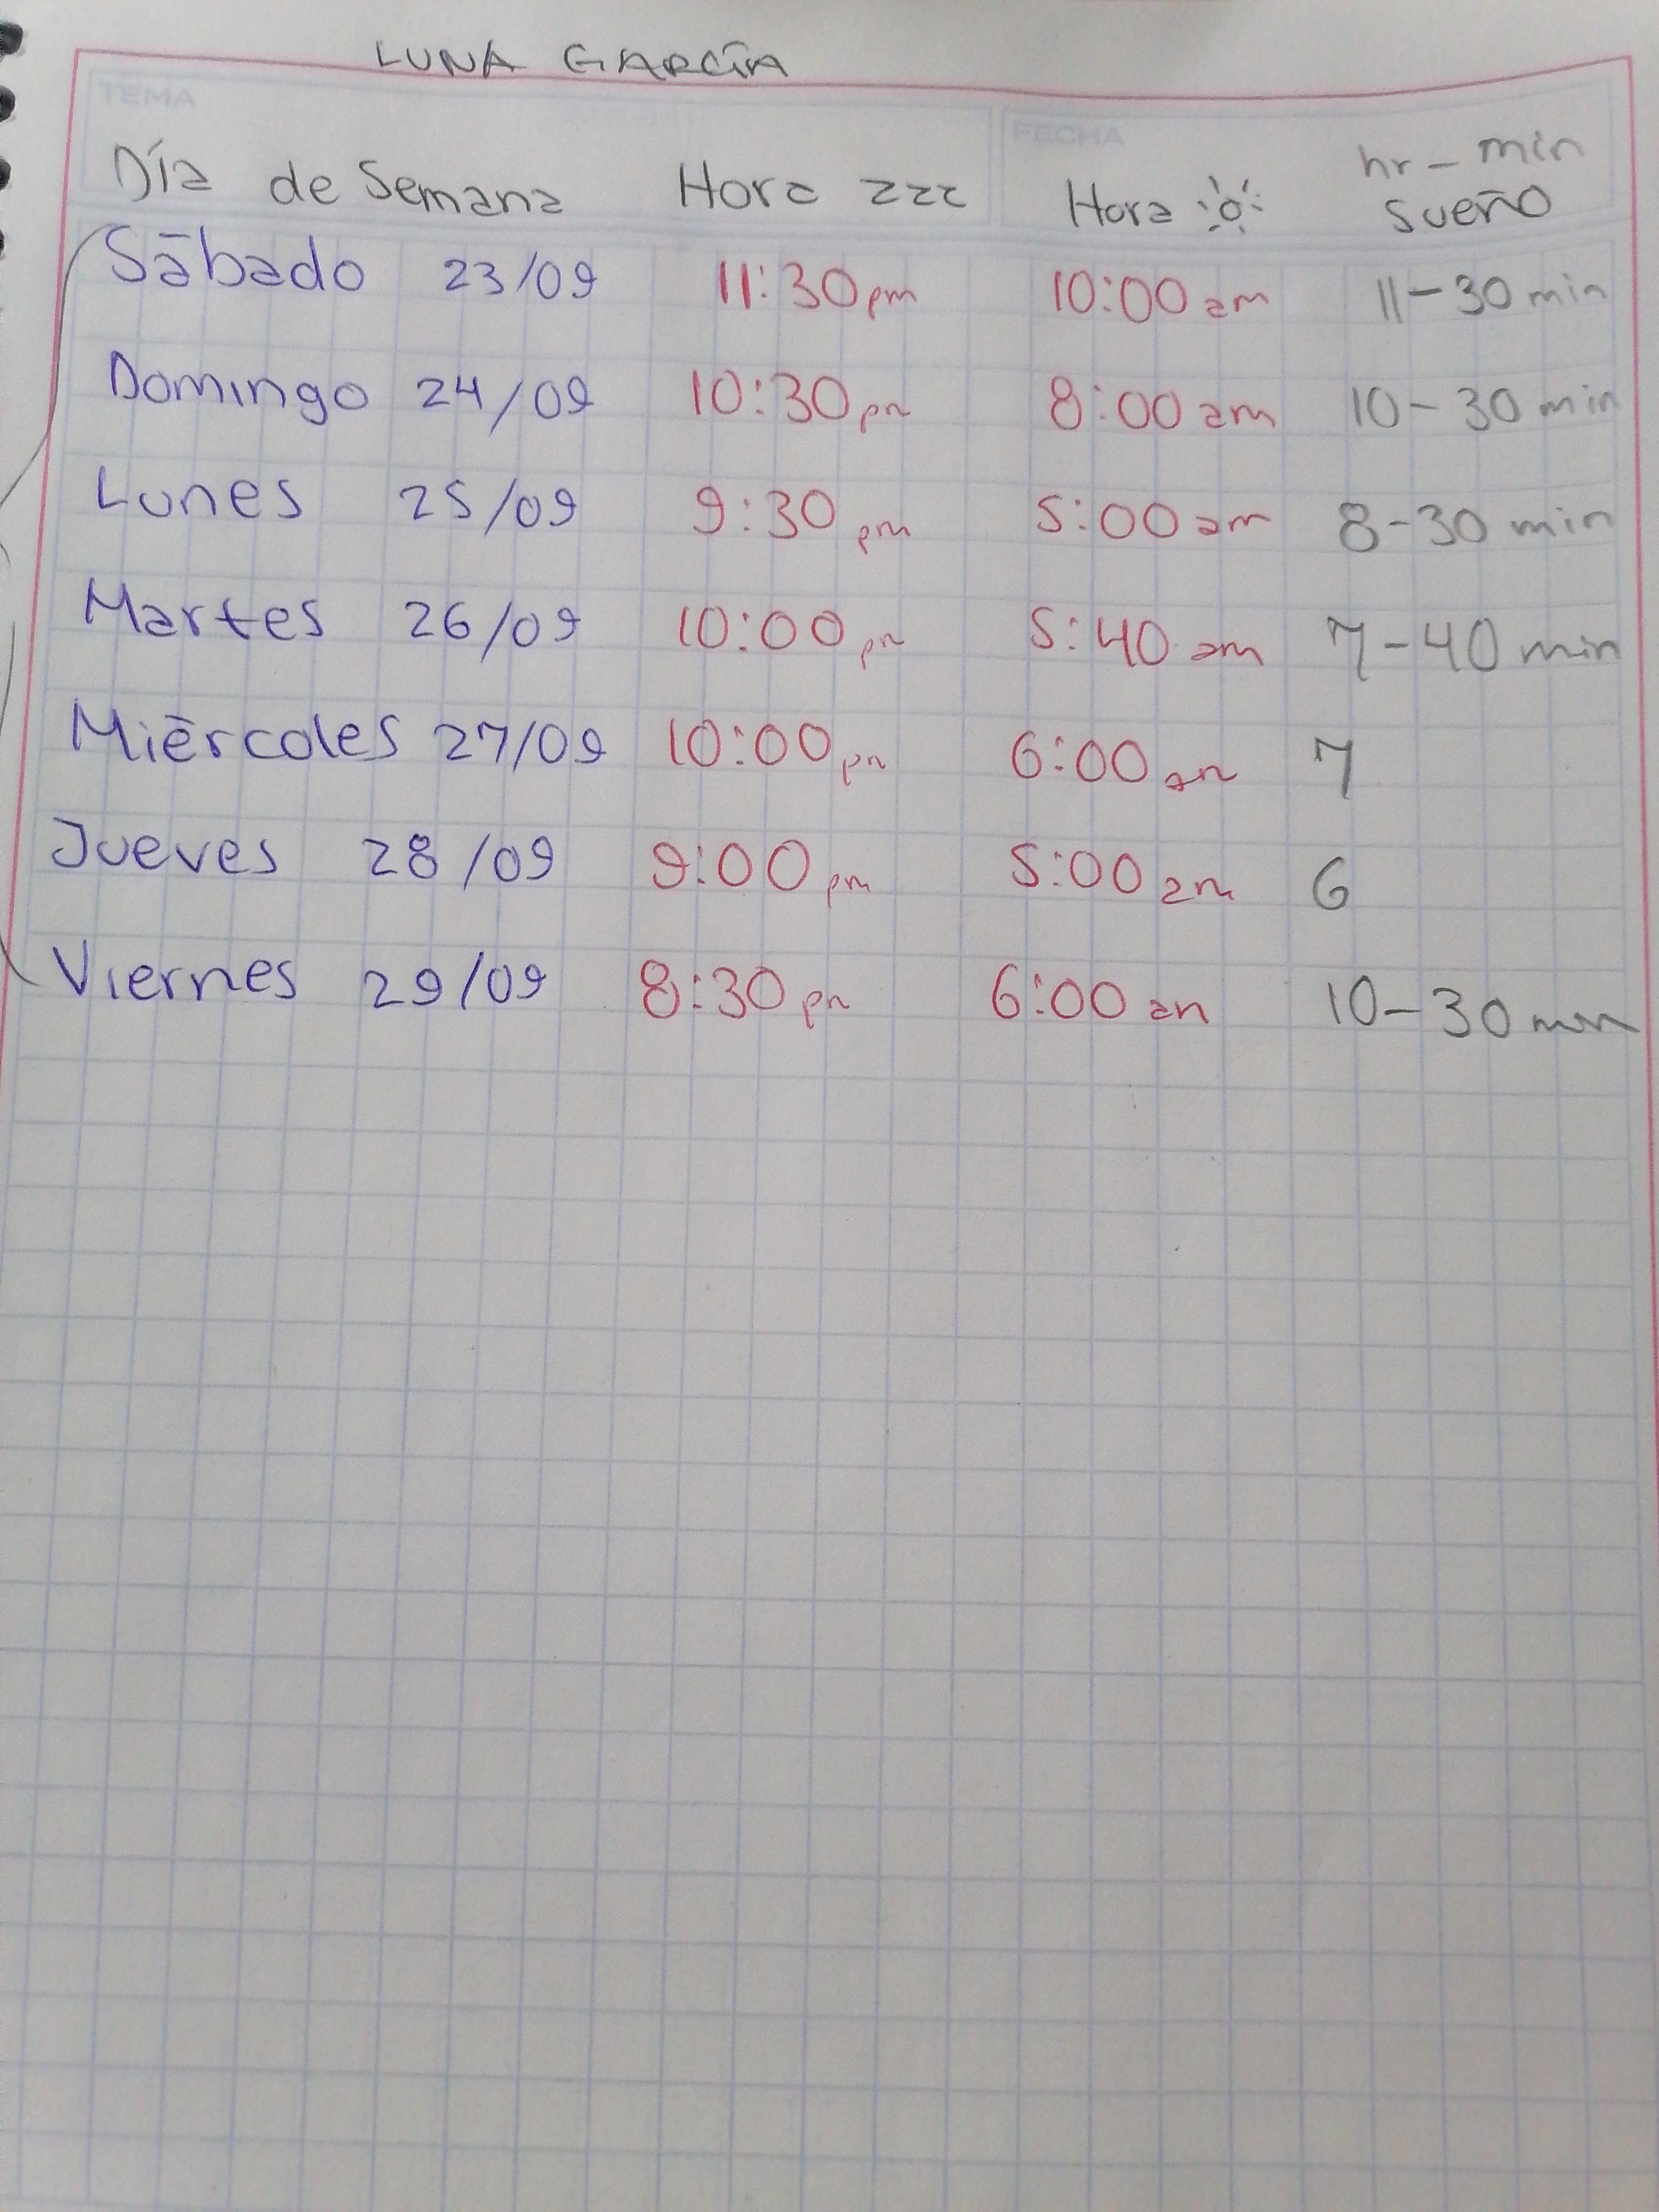 LUNA GARCÍA
TEMA
FECHA
Día de Semana Hora zzz Hora hr - min sueño
Sábado 23/09 11:30 pm 10:00 am 11-30 min
Domingo 24/09 10:30 pm 8:00 am 10-30 min
Lunes 25/09 9:30 pm 5:00 am 8-30 min
Martes 26/09 10:00 pm 5:40 am 7-40 min
Miércoles 27/09 10:00 pm 6:00 am 7
Jueves 28/09 9:00 pm 5:00 am 6
Viernes 29/09 8:30 pm 6:00 am 10-30 min